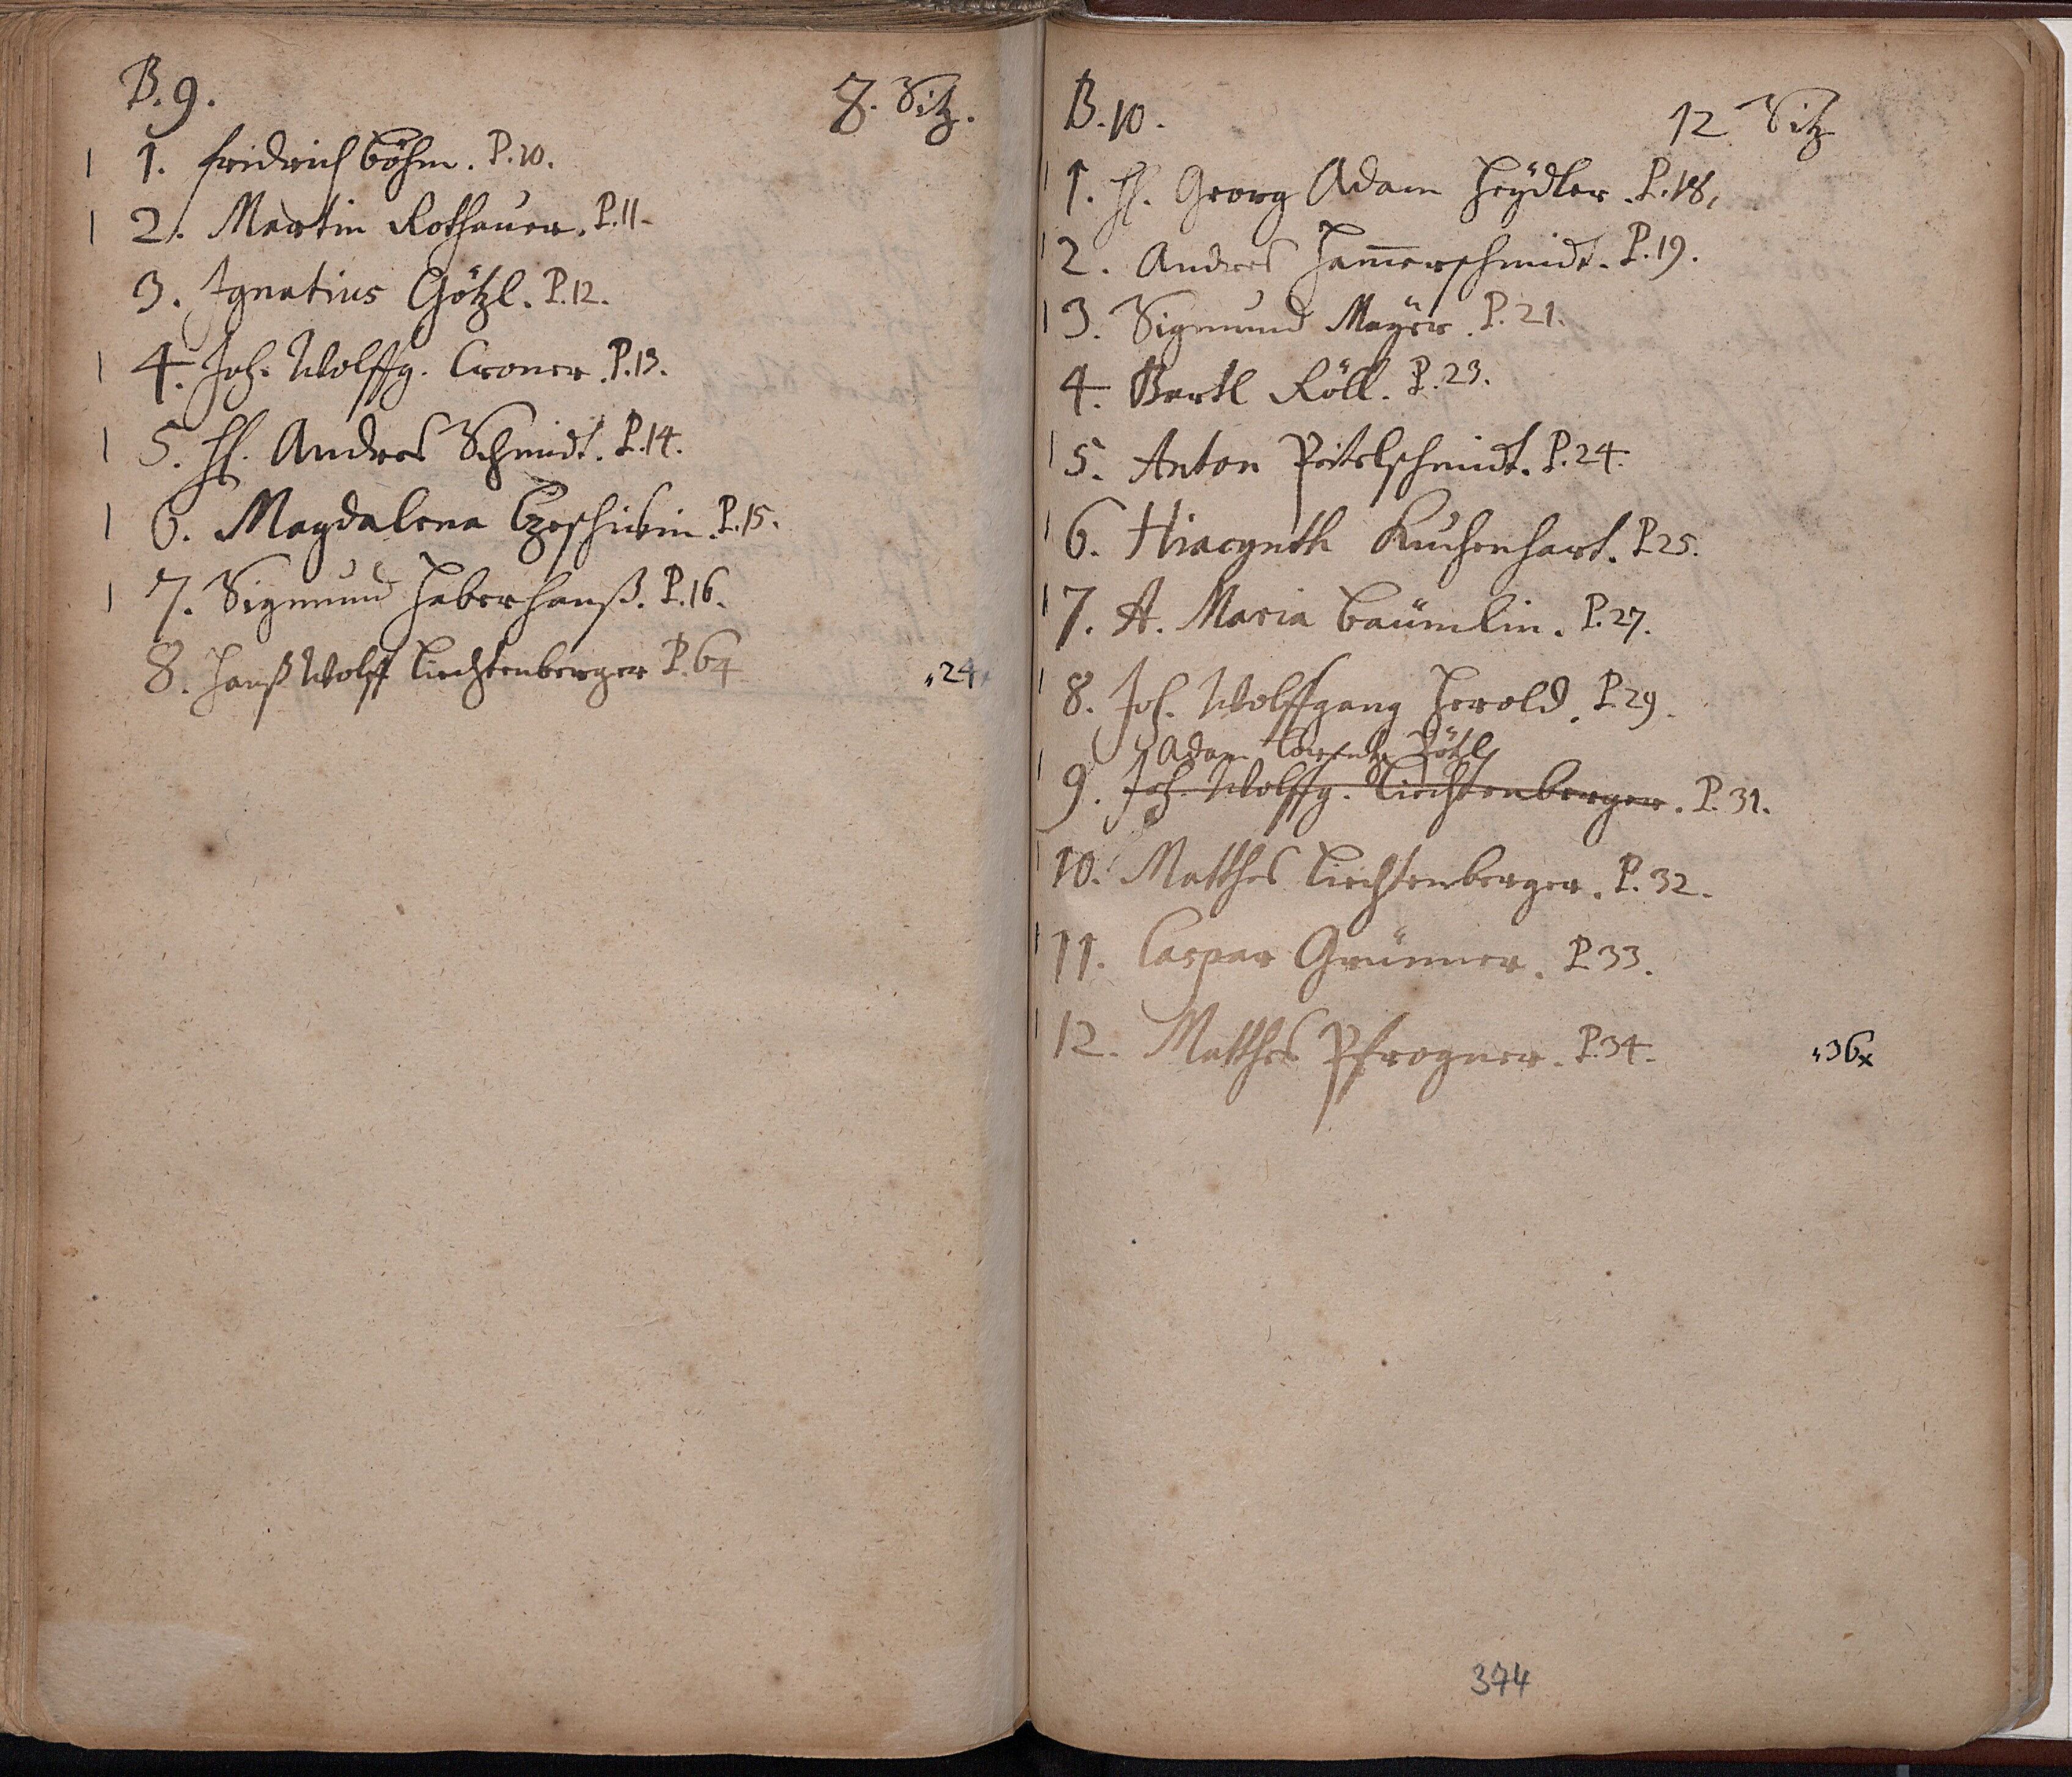 B. 9.
8. Sitz.
1. fridrich Böhm. P. 10.
2. Martin Rothauer. P. 11.
3. Ignatius Götzl. P. 12.
4. Joh. Wolffg. Croner. P. 13.
5. H. Andres Schmidt. P. 14.
6. Magdalena P. 15.
7. Sigmund Haberhanß. P. 16.
8. Hanß Wolff Liechtenberger P. 64
24
B. 10.
12 Sitz
1. H. Georg Adam Heÿdler. P. 18,
2. Andres Ham̅erschmidt. P. 19.
3. Sigmund Maÿer. P. 21.
4. Bartl Röll. P. 23.
5. Anton Peitelschmidt. P. 24.
6. Hiacynth Kuchenhart. P 25.
7. A. Maria Baümlin. P. 27.
8. Joh. Wolffgang Herold. P 29.
Adam Lorentz
9. Joh. Wolffg. Liechtenberger. P. 31.
10. Matthes Liechtenberger. P. 32.
11. Caspar Grünner. P 33.
12. Matthes Pfrogner. P. 34.
36x
374